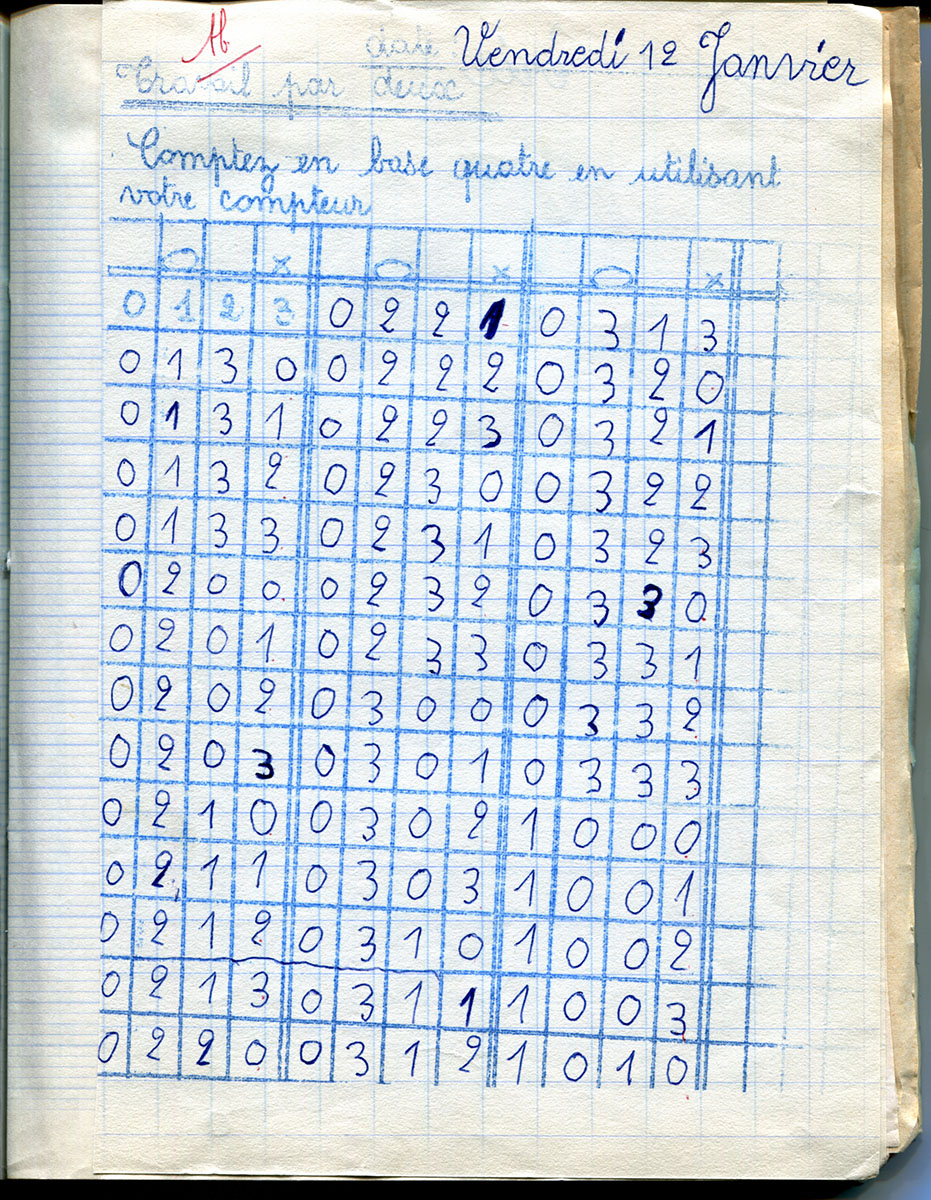 Ab
date Vendredi 12 Janvier
Travail par deux
Comptez en base quatre en utilisant
votre compteur
x x x
0 1 2 3 0 2 2 1 0 3 1 3
0 1 3 0 0 2 2 2 0 3 2 0
0 1 3 1 0 2 2 3 0 3 2 1
0 1 3 2 0 2 3 0 0 3 2 2
0 1 3 3 0 2 3 1 0 3 2 3
0 2 0 0 0 2 3 2 0 3 3 0
0 2 0 1 0 2 3 3 0 3 3 1
0 2 0 2 0 3 0 0 0 3 3 2
0 2 0 3 0 3 0 1 0 3 3 3
0 2 1 0 0 3 0 2 1 0 0 0
0 2 1 1 0 3 0 3 1 0 0 1
0 2 1 2 0 3 1 0 1 0 0 2
0 2 1 3 0 3 1 1 1 0 0 3
0 2 2 0 0 3 1 2 1 0 1 0